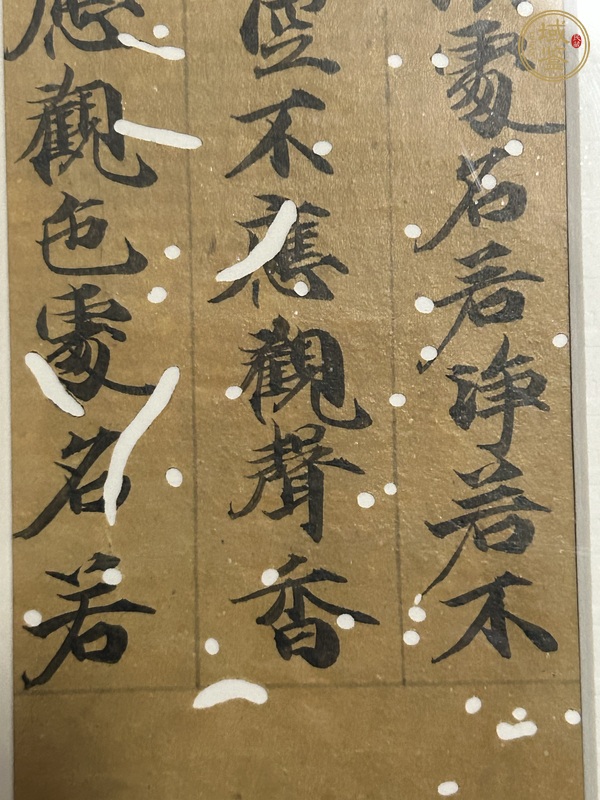 處名若淨若不
空不應觀聲香
應觀色處名若